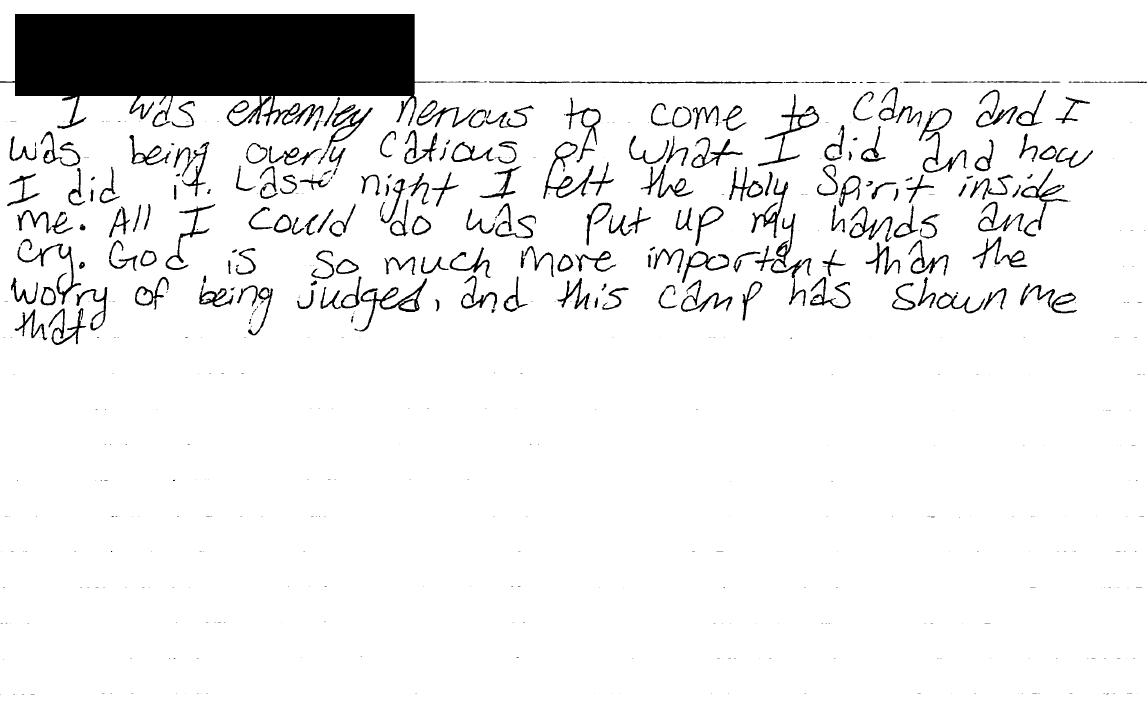 I was extremley nervous to come to camp and I
was being overly catious of what I did and how
I did it. Last night I felt the Holy Spirit inside
me. All I could do was put up my hands and
cry. God is so much more important than the
worry of being judged, and this camp has shown me
that